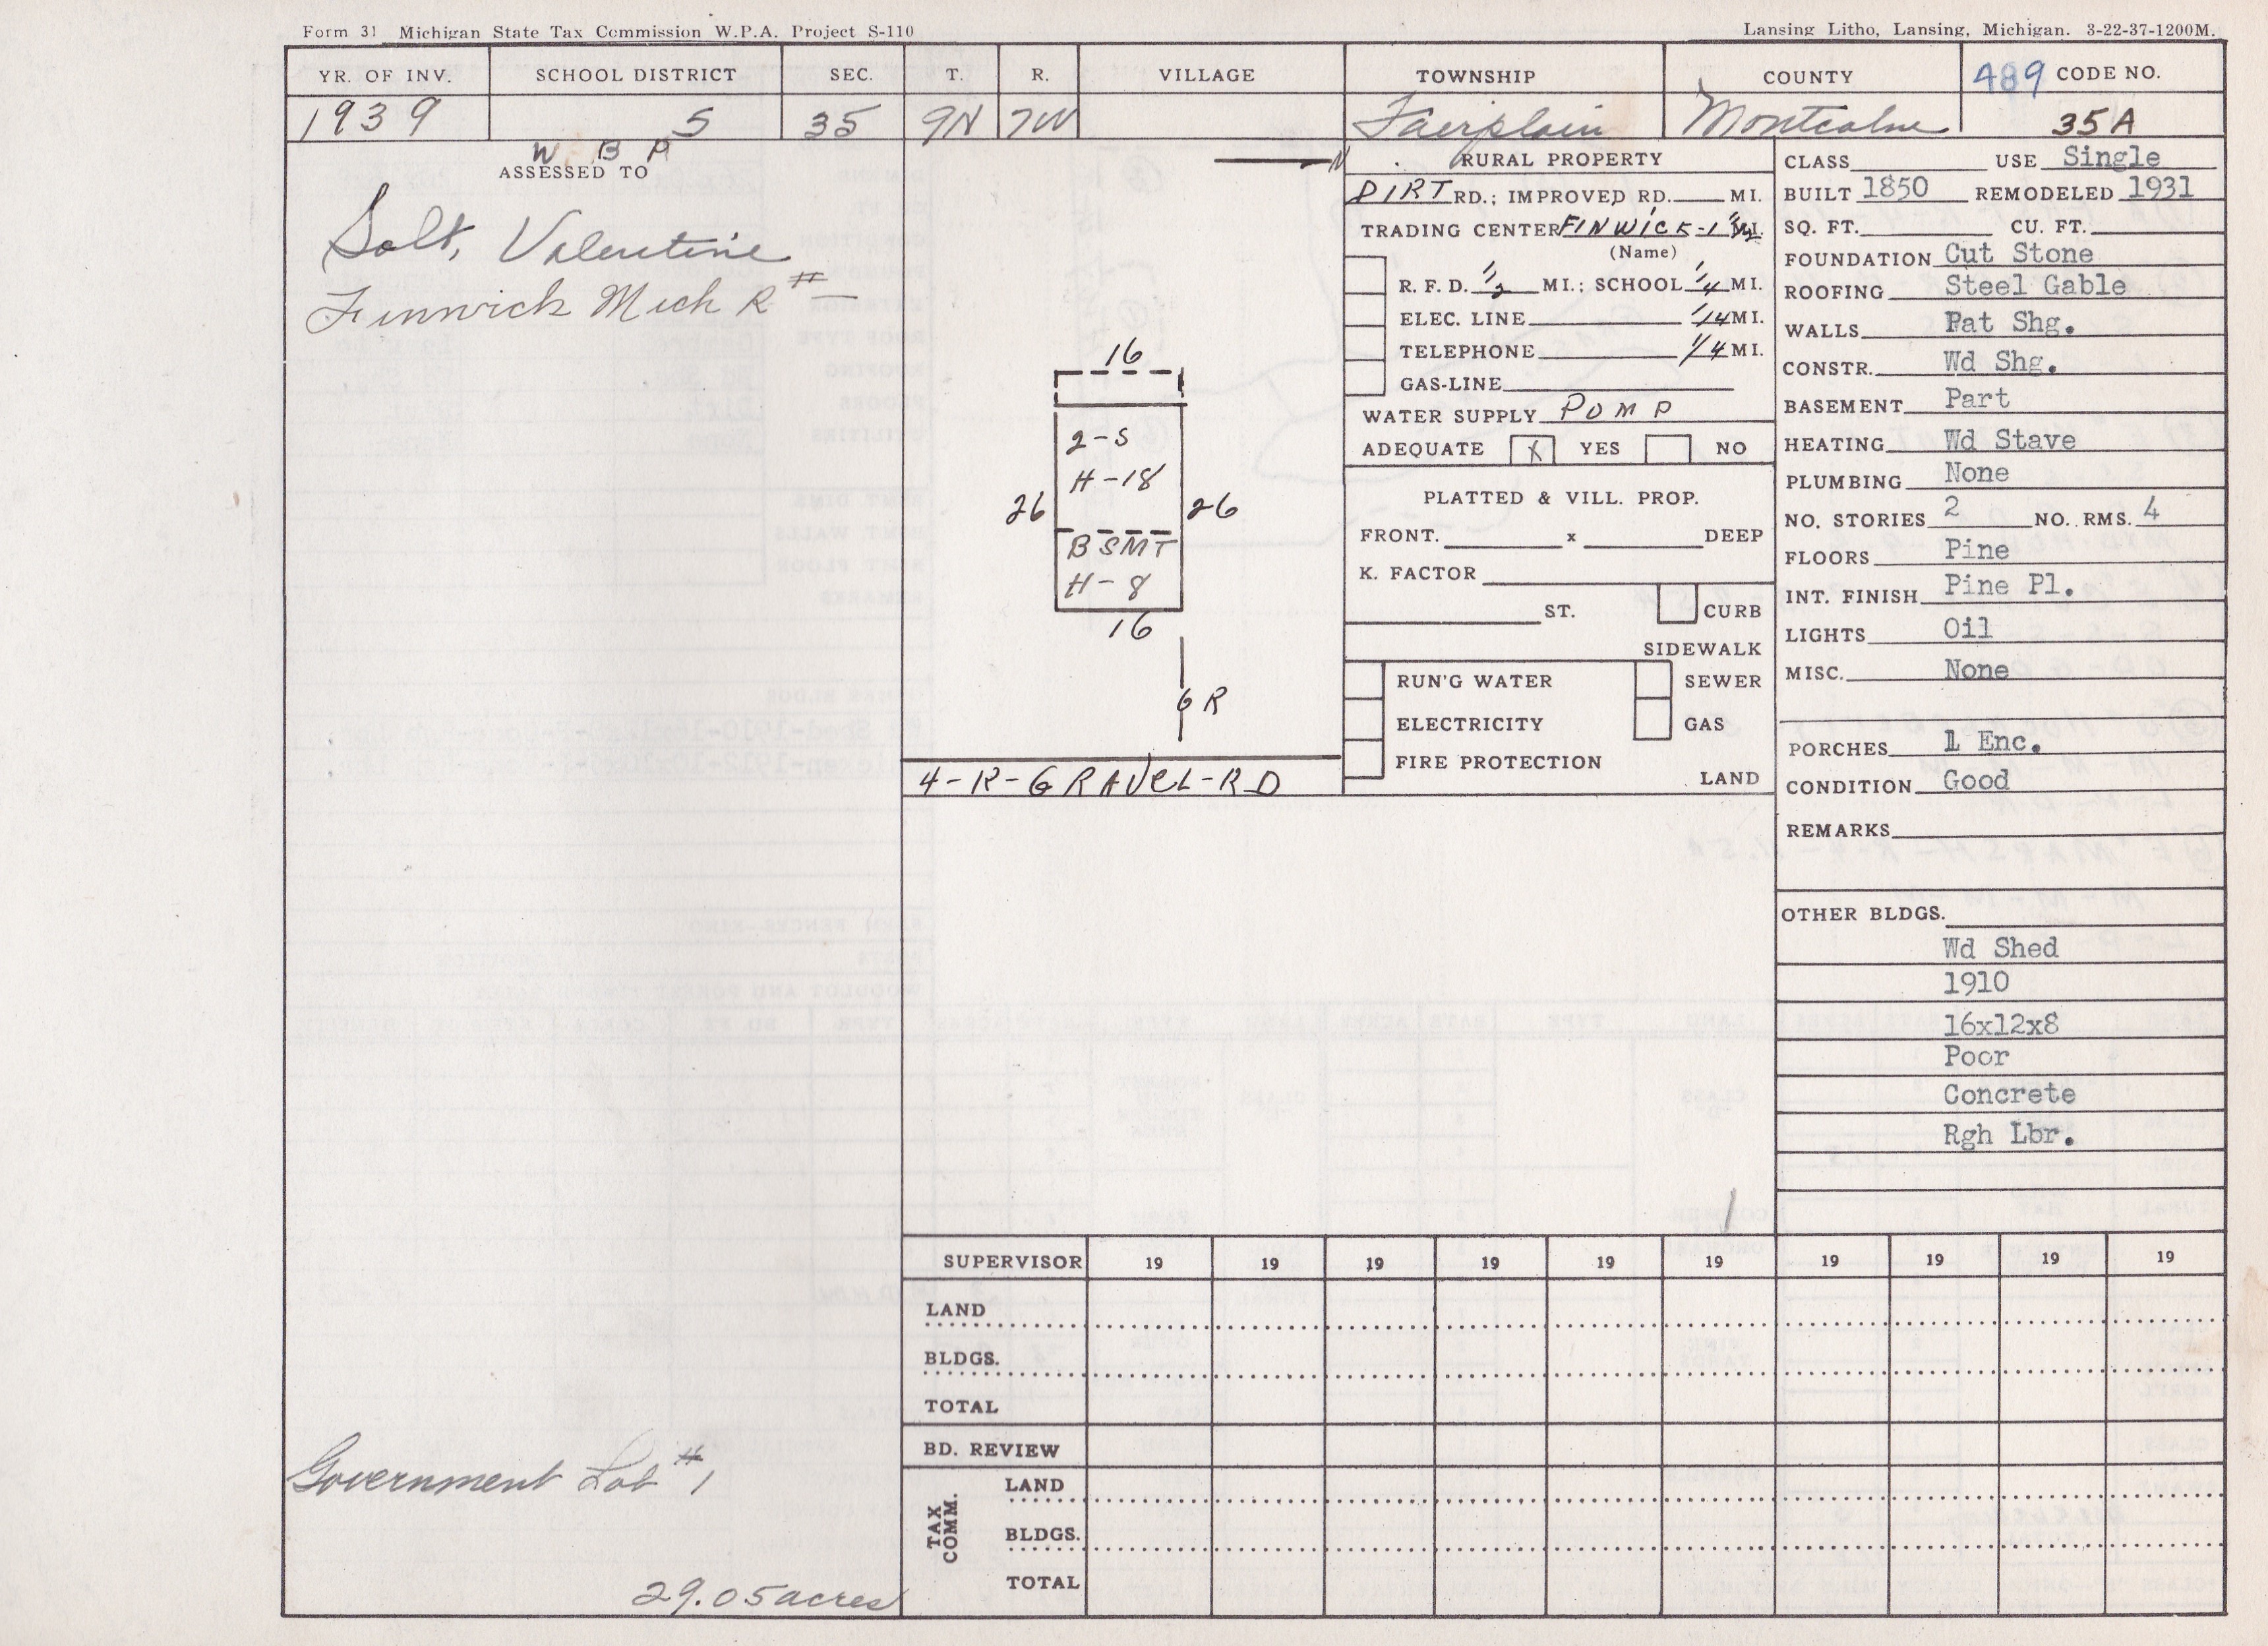 Form 31 Michigan State Tax Commission W.P.A. Project S-110
Lansing Litho, Lansing, Michigan. 3-22-37-1200M.
YR. OF INV. SCHOOL DISTRICT SEC. T. R. VILLAGE TOWNSHIP COUNTY 489 CODE NO.
1939 5 35 9N 7W Fairplain Montcalm 35A
W B P
ASSESSED TO
Salt, Valentine
Fenwick Mich R #
Government Lot # 1
29.05 acres
N
16
2-S
H-18
26 26
BSMT
H-8
16
6 R
4-R-GRAVEL-RD
RURAL PROPERTY
DIRT RD.; IMPROVED RD. MI.
TRADING CENTER FINWICK-1 MI.
(Name)
R. F. D. 1/2 MI.; SCHOOL 1/4 MI.
ELEC. LINE 1/4 MI.
TELEPHONE 1/4 MI.
GAS-LINE
WATER SUPPLY PUMP
ADEQUATE X YES NO
PLATTED & VILL. PROP.
FRONT. x DEEP
K. FACTOR
ST. CURB
SIDEWALK
RUN'G WATER SEWER
ELECTRICITY GAS
FIRE PROTECTION
LAND
CLASS USE Single
BUILT 1850 REMODELED 1931
SQ. FT. CU. FT.
FOUNDATION Cut Stone
ROOFING Steel Gable
WALLS Pat Shg.
CONSTR. Wd Shg.
BASEMENT Part
HEATING Wd Stave
PLUMBING None
NO. STORIES 2 NO. RMS. 4
FLOORS Pine
INT. FINISH Pine Pl.
LIGHTS Oil
MISC. None
PORCHES 1 Enc.
CONDITION Good
REMARKS
OTHER BLDGS.
Wd Shed
1910
16x12x8
Poor
Concrete
Rgh Lbr.
SUPERVISOR 19 19 19 19 19 19 19 19 19 19
LAND
BLDGS.
TOTAL
BD. REVIEW
TAX COMM.
LAND
BLDGS.
TOTAL